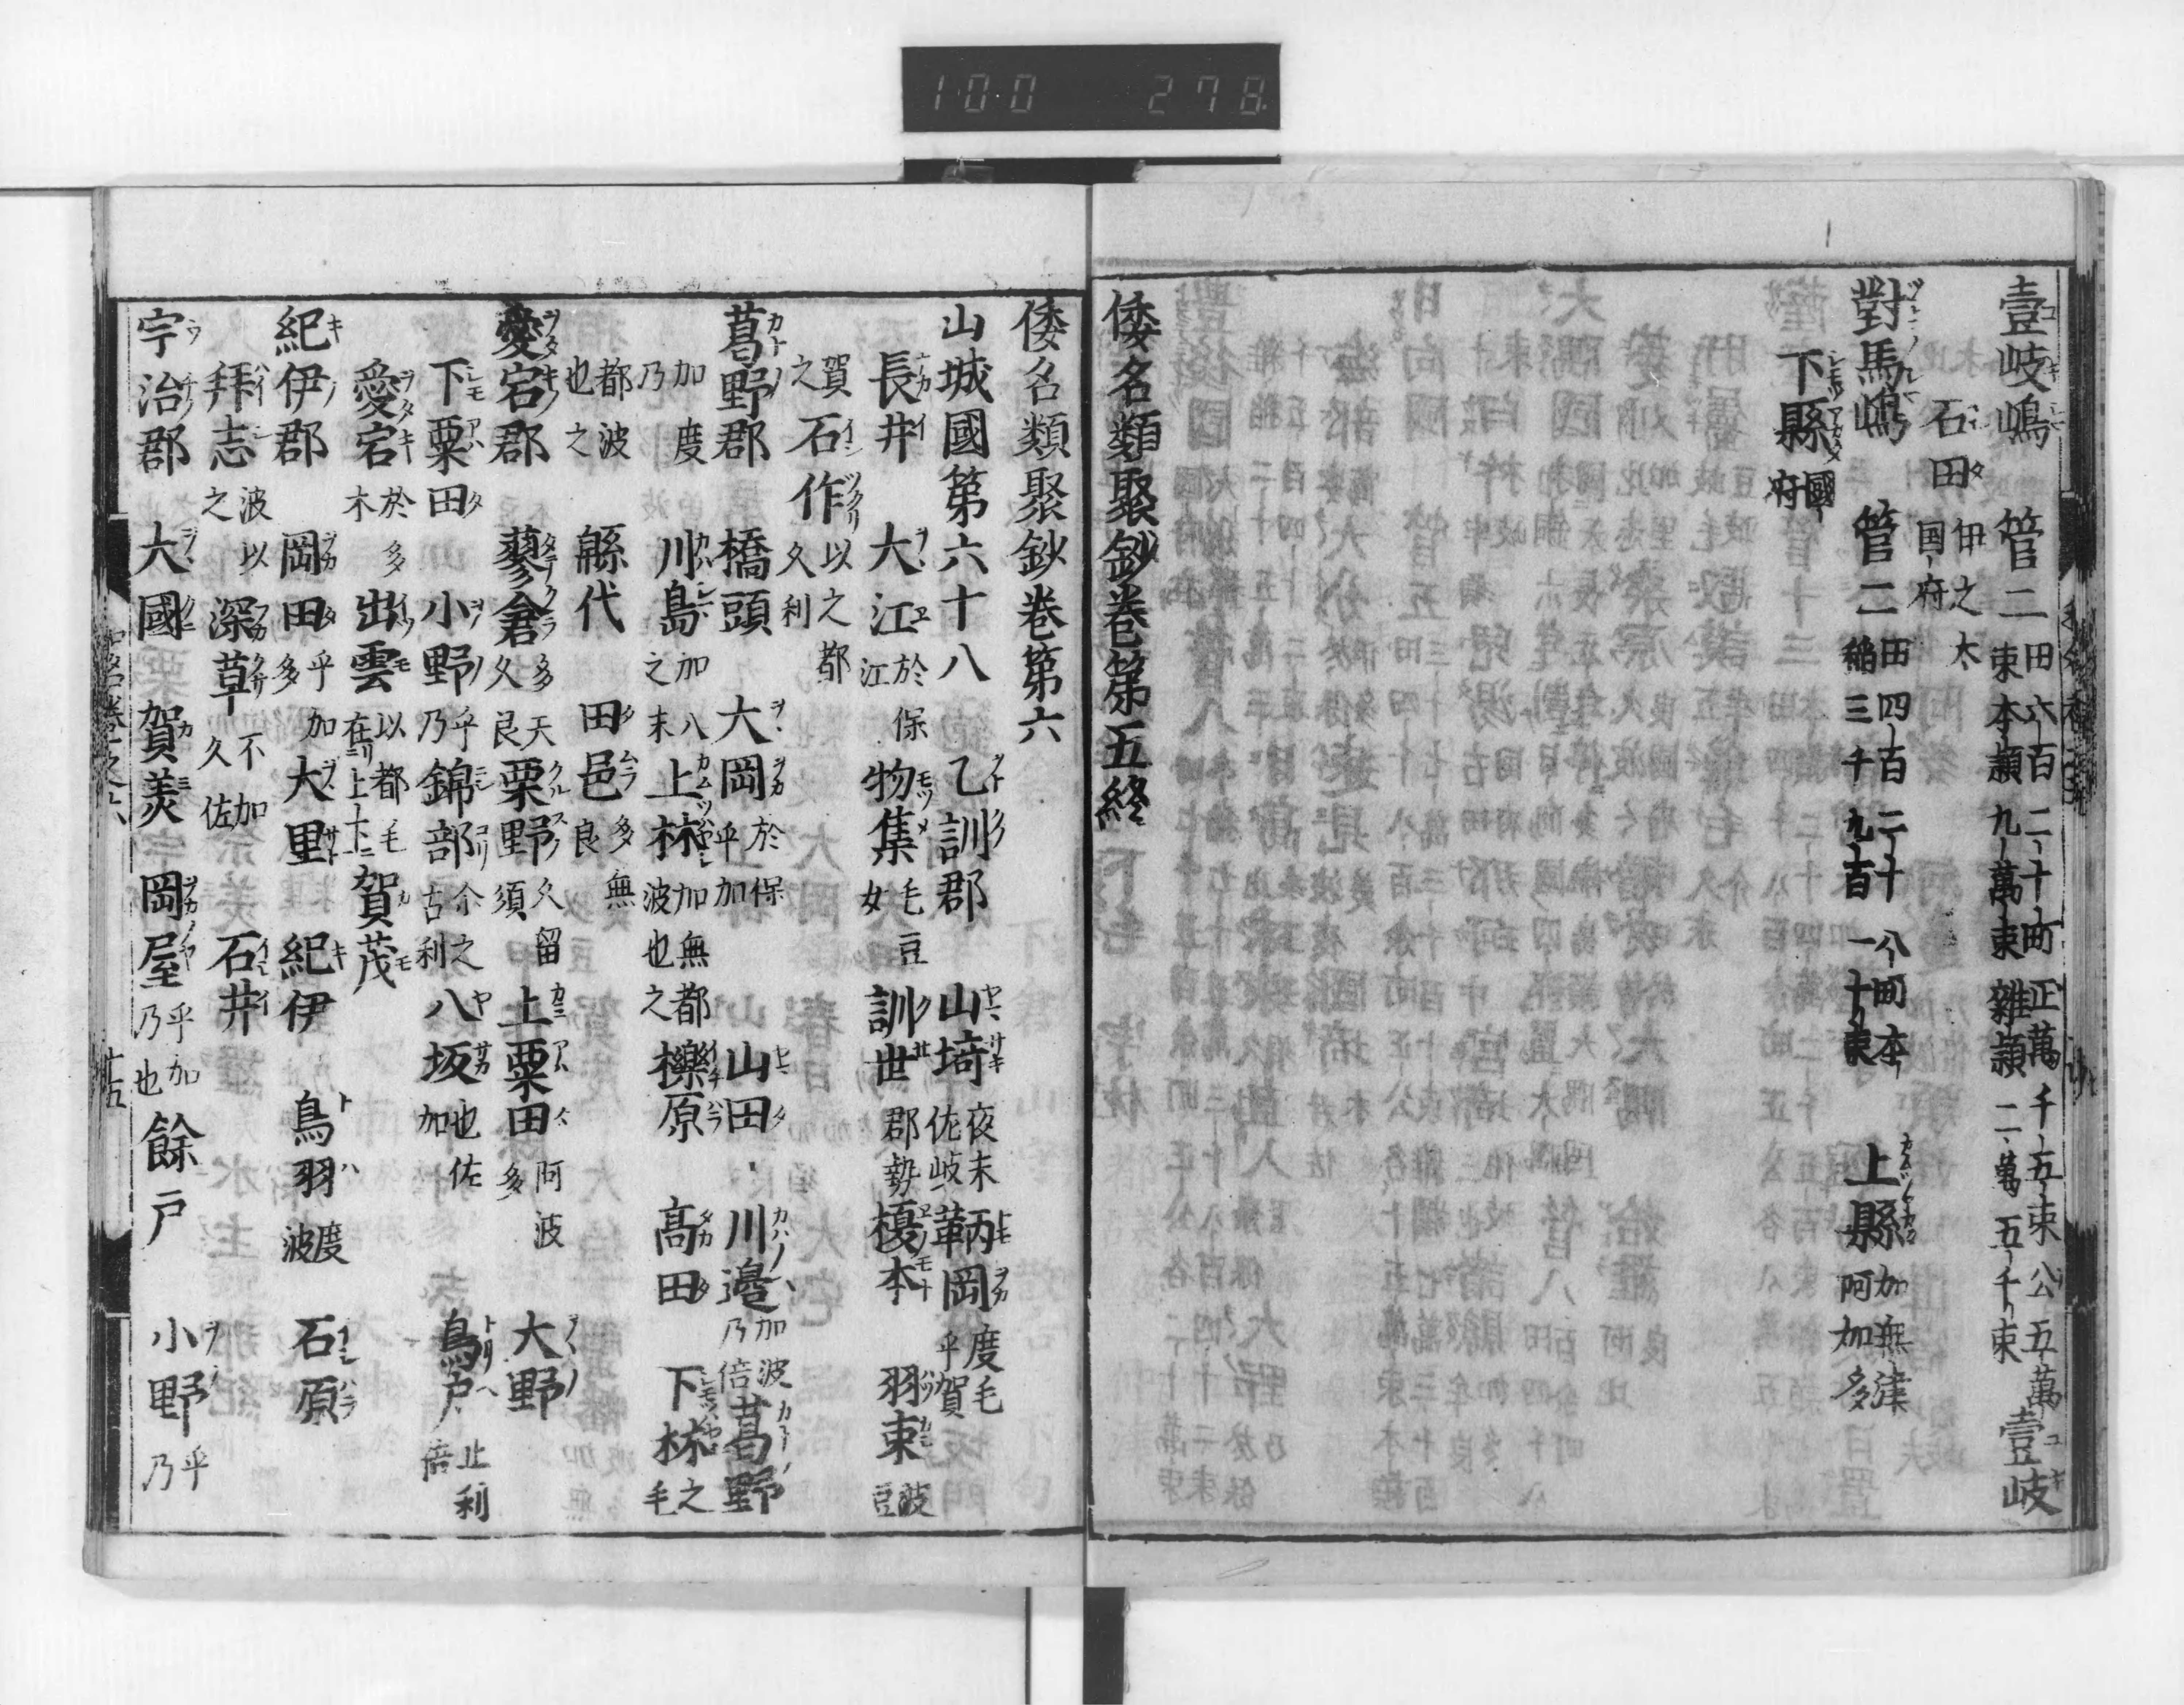 100 278
壹岐嶋 管二 田六百二十町正萬千五束公五萬 束本穎九萬束雜穎二萬五千束 壹岐
石田 伊之太 国府
對馬嶋 管二 田四百二十八町本 稲三千九百一十束 上縣 加無津 阿加多
下縣 國府
倭名類聚鈔巻第五終
倭名類聚鈔巻第六
山城國第六十八 乙訓郡 山埼 夜末佐岐 鞆岡 度毛乎賀
長井 大江 於保江 物集 毛豆女 訓世 郡勢 榎本 羽束 波豆
賀之 石作 以之都久利
葛野郡 橋頭 大岡 於保乎加 山田 川邊 加波乃倍 葛野
加度乃 川島 加八之末 上林 加無都波也之 櫟原 高田 下林 之毛
都波也之 緜代 田邑 多無良
愛宕郡 蓼倉 多天久良 栗野 久留須 上粟田 阿波多 大野
下粟田 小野 乎乃 錦部 尓之古利 八坂 也佐加 鳥戸 止利倍
愛宕 於多木 出雲 以都毛 在上下 賀茂
紀伊郡 岡田 乎加多 大里 紀伊 鳥羽 度波 石原
拜志 波以之 深草 不加久佐 石井
宇治郡 大國 賀美 岡屋 乎加乃也 餘戸 小野 乎乃
廿五